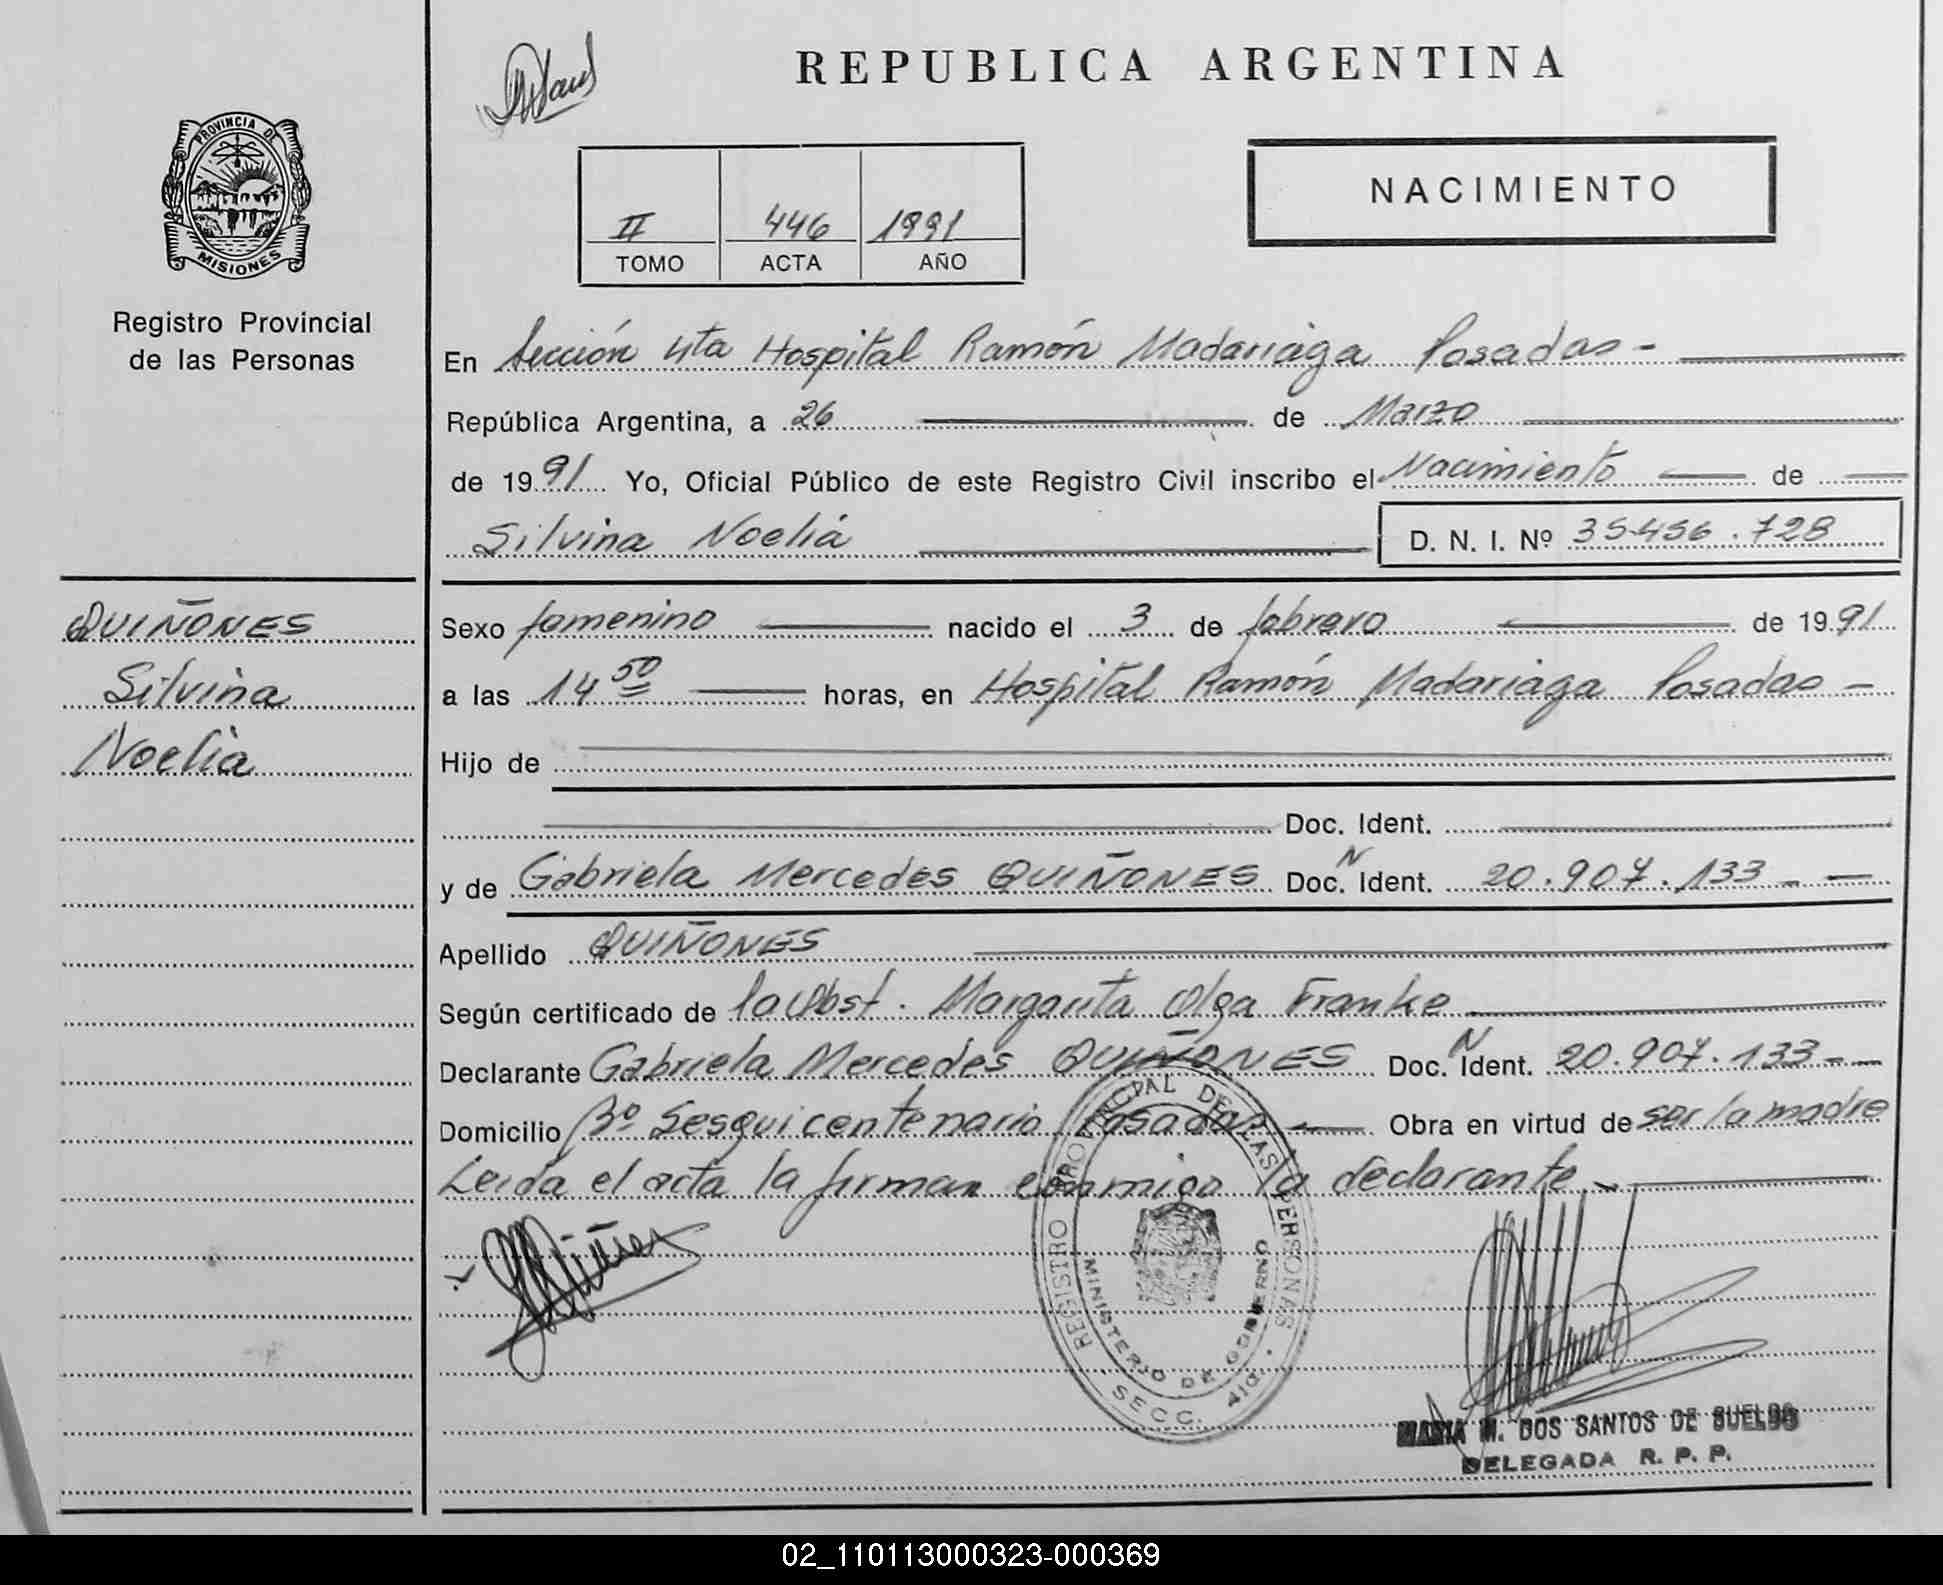 REPUBLICA ARGENTINA
PROVINCIA DE
MISIONES
Registro Provincial
de las Personas
II 446 1991
TOMO ACTA AÑO
NACIMIENTO
En Sección 4ta Hospital Ramón Madariaga Posadas -
República Argentina, a 26 de Marzo
de 1991 Yo, Oficial Público de este Registro Civil inscribo el Nacimiento de
Silvina Noelia D. N. I. Nº 35.456.728
QUIÑONES
Silvina
Noelia
Sexo femenino nacido el 3 de febrero de 1991
a las 14 50 horas, en Hospital Ramón Madariaga Posadas -
Hijo de
Doc. Ident.
y de Gabriela Mercedes QUIÑONES Doc. N Ident. 20.907.133 - -
Apellido QUIÑONES
Según certificado de la Obst. Margarita Olga Franke
Declarante Gabriela Mercedes QUIÑONES Doc. N Ident. 20.907.133 - -
Domicilio Bº Sesquicentenario Posadas Obra en virtud de ser la madre
Leída el acta la firman conmigo la declarante -
REGISTRO PROVINCIAL DE LAS PERSONAS
MINISTERIO DE GOBIERNO
SECC. 4ta.
MARIA M. DOS SANTOS DE SUELDO
DELEGADA R. P. P.
02_110113000323-000369